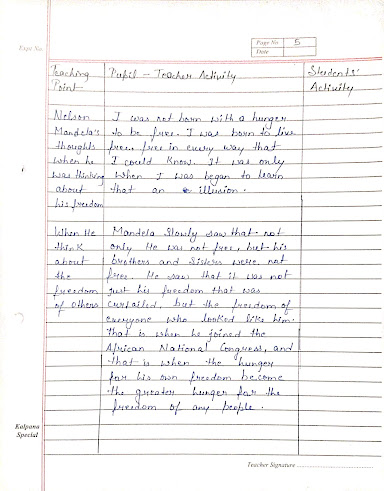 Expt No.
Page No 5
Date
Teaching Point Pupil - Teacher Activity Students' Activity
Nelson I was not born with a hunger
Mandela's to be free. I was born to live
thoughts free, free in every way that
when he I could know. It was only
was thinking when I was began to learn
about that an illusion.
his freedom
When He Mandela Slowly saw that not
think only He was not free, but his
about brothers and sisters were not
the free. He saw that it was not
freedom just his freedom that was
of others curtailed, but the freedom of
everyone who looked like him.
That is when he joined the
African National Congress, and
that is when the hunger
for his own freedom become
the greater hunger for the
freedom of any people.
Kalpana
Special
Teacher Signature